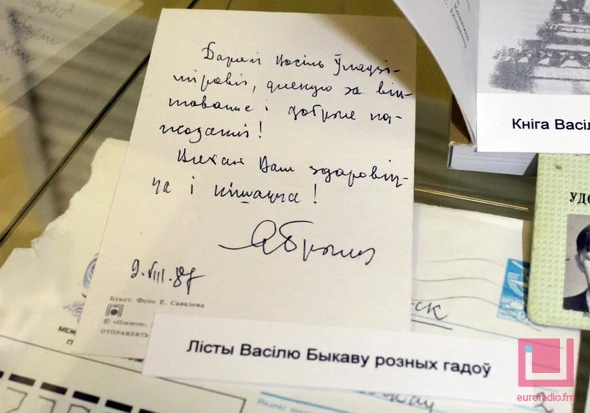 Дарагі Васіль Ўладзі-
міравіч, дзякую за він-
шаванне і добрыя па-
жаданні!
Вам здароўі-
ца і пішацца!
9.VIII.87
Букет. Фото Е. Савалова
© «Планета»,
ОТПРАВЛЯТЬ
Кніга Васіл
УДО
СК
МЕЖ
Лісты Васілю Быкаву розных гадоў
euroradio.fm